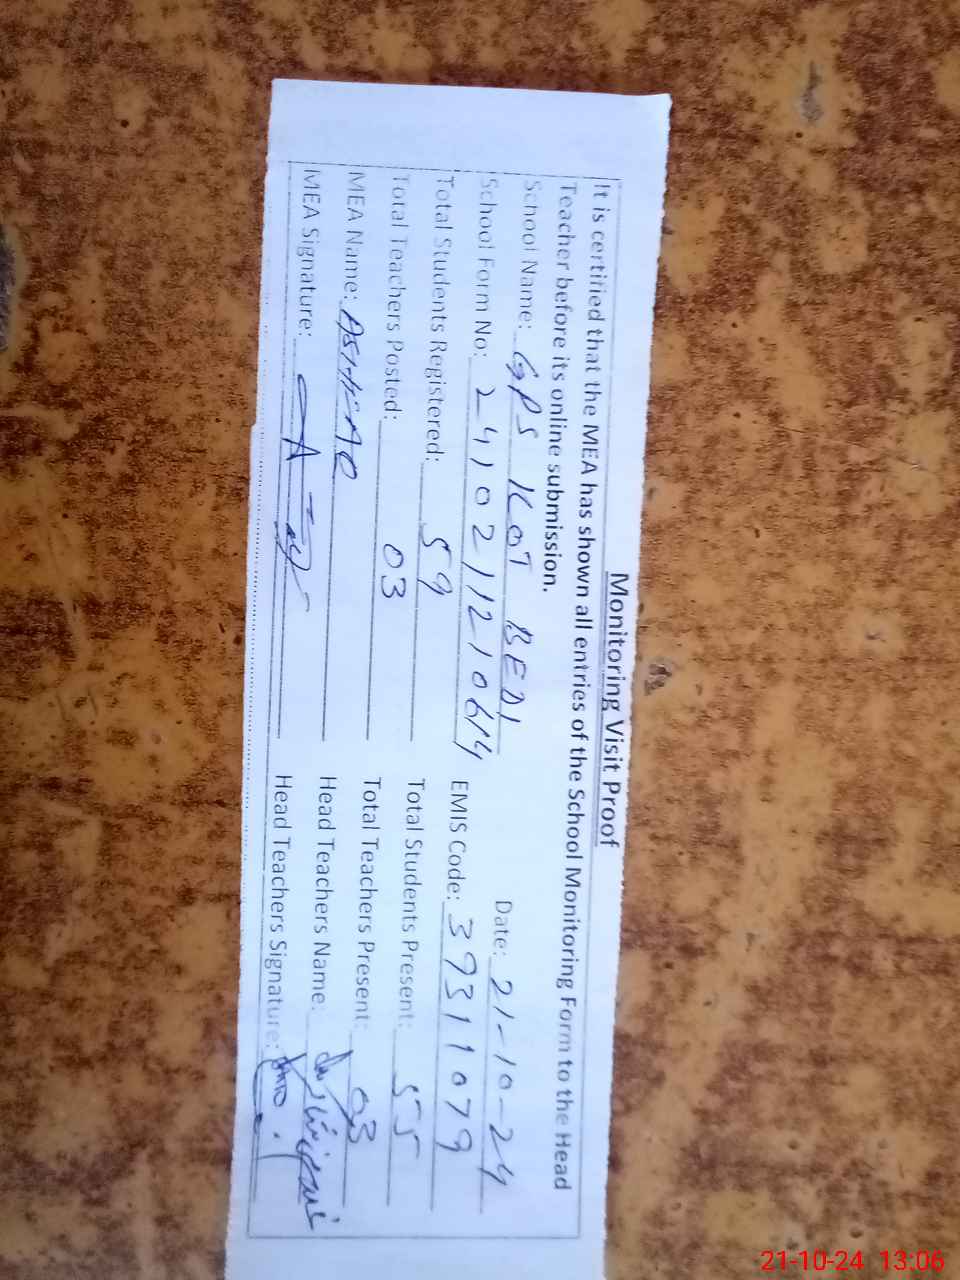 Monitoring Visit Proof
It is certified that the MEA has shown all entries of the School Monitoring Form to the Head
Teacher before its online submission.
School Name: GPS KOT BEDI Date: 21-10-24
School Form No: 2410211210614 EMIS Code: 39311079
Total Students Registered: 59 Total Students Present: 55
Total Teachers Posted: 03 Total Teachers Present: 03
MEA Name: Head Teachers Name:
MEA Signature: Head Teachers Signature:
21-10-24 13:06